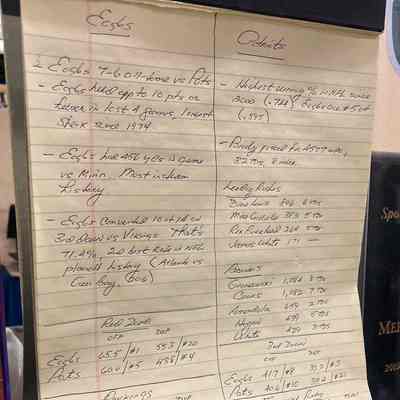 Eagles
- Eagles 7-6 all-time vs Pats
- Eagles held opp to 10 pts or
fewer in last 4 games, longest
streak since 1974
- Eagles had 456 yds in game
vs Minn. Most in team
history
- Eagles converted 10 of 14 on
3rd Down vs Vikings. That's
71.4%, 2nd best Rate in NFL
playoff history (Atlanta vs
Green Bay,
Red Zone
OFF DEF
Eagles 65.5 / #1 55.3 / #20
Pats 60.0 / #5 43.8 / #4
Rankings
Patriots
- Highest winning % in NFL since
2000 (.744) Eagles are #5 at
(.595)
- Brady passed for 4577 yds,
32 TDs, 8 ints.
Leading Rushers
Dion Lewis 896 6 TDs
Mike Gillislee 383 5 TDs
Rex Burkhead 264 5 TDs
James White 171 —
Receivers
Gronkowski 1,084 8 TDs
Cooks 1,082 7 TDs
Amendola 659 2 TDs
Hogan 439 5 TDs
White 429 3 TDs
3rd Down
OFF DEF
Eagles 41.7 / #8 #3
Pats 40.4 / #10 / #21